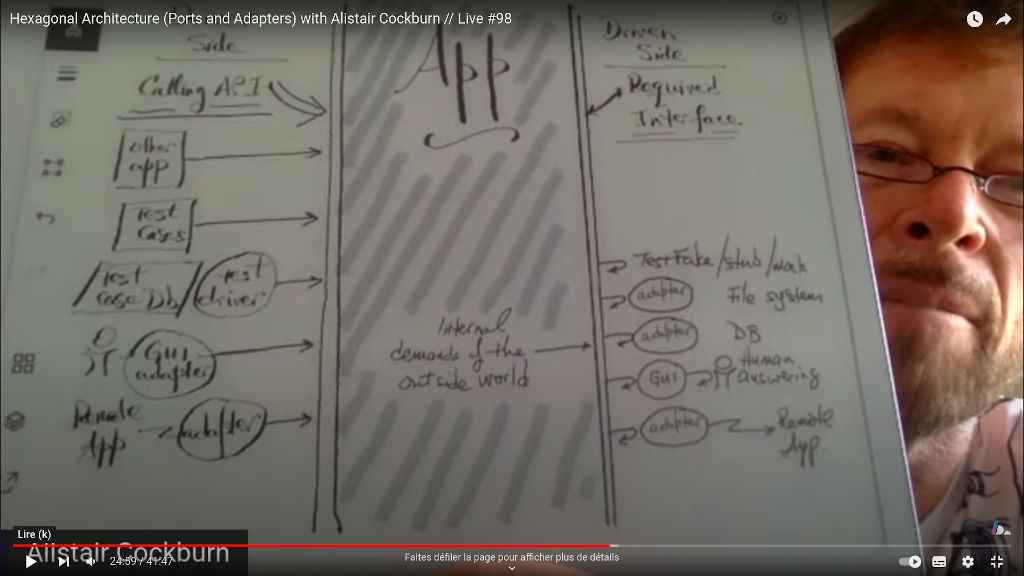 Hexagonal Architecture (Ports and Adapters) with Alistair Cockburn // Live #98
Side
Calling API
other
app
Test
Cases
Test
Case Db
Test
driver
GUI
adapter
Remote
App
adapter
App
Internal
demands of the
outside world
Driven
Side
Required
Interface
Test Fake/stub/mock
adapter File system
adapter DB
GUI Human
answering
adapter Remote
App.
Lire (k)
Alistair Cockburn
24:59 / 41:47
Faites défiler la page pour afficher plus de détails